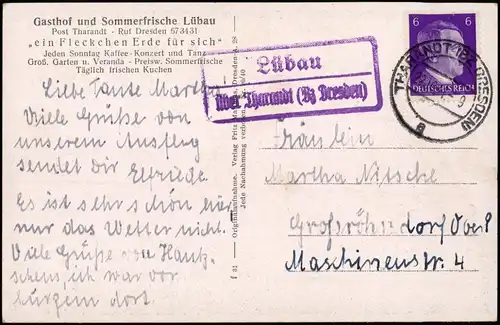 Gasthof und Sommerfrische Lübau
Post Tharandt - Ruf Dresden 573431
"ein Fleckchen Erde für sich"
Jeden Sonntag Kaffee-Konzert und Tanz
Groß. Garten u. Veranda - Preisw. Sommerfrische
Täglich frischen Kuchen
Liebe Tante Martha
Viele Grüße von
unserem Ausflug
sendet dir Elfriede.
Es ist sehr schön hier
nur das Wetter nicht.
Viele Grüße von
schens, ich war vor
kurzem dort.
Originalaufnahme. Verlag Fritz
Jede Nachahmung
Lübau
über Tharandt (Bz Dresden)
6 6
DEUTSCHES REICH
THARANDT (BZ DRESDEN)
a
Fräulein
Martha Nitsche
Großröhrsdorf
Maschinenstr. 4